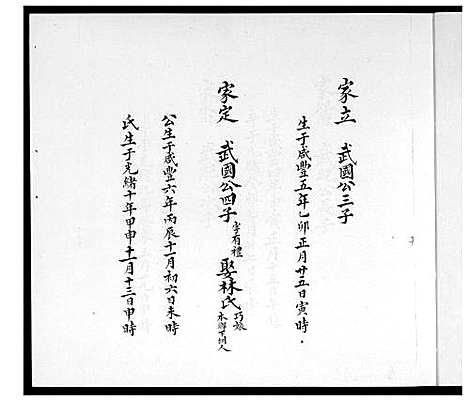 家立　武國公三子
生于咸豐五年乙卯正月廿五日寅時
家定　武國公四子 字有禮 娶林氏 巧娘
本鄉下州人
公生于咸豐六年丙辰十一月初六日未時
氏生于光緒十年甲申十一月十三日申時